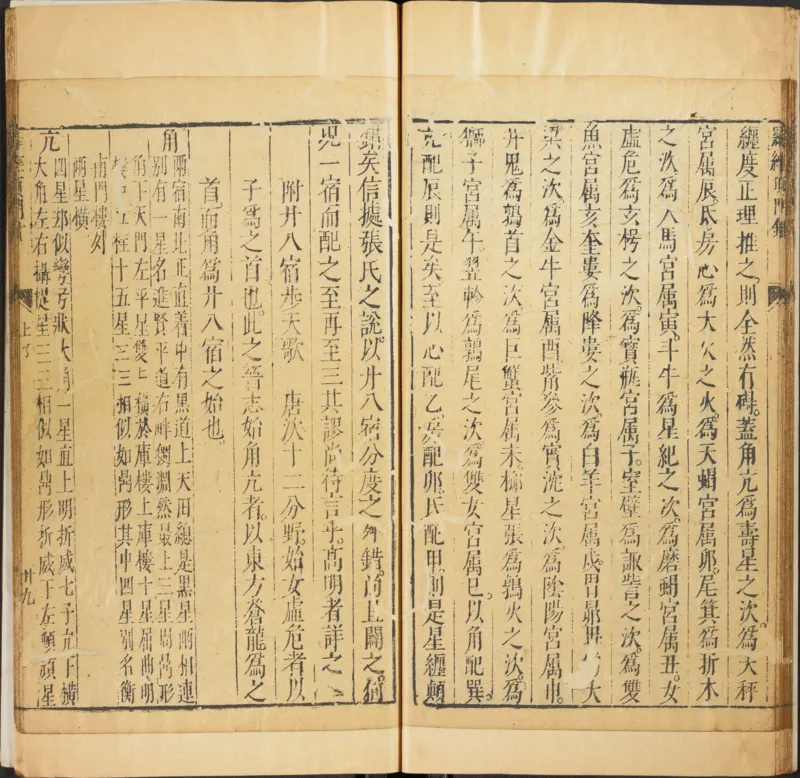 纏度正理推之則全然有碍。蓋角亢為壽星之次。為天秤
宮属辰。氐房心為大火之次。為天蝎宮属卯。尾箕為折木
之次。為人馬宮属寅。斗牛為星紀之次。為磨蝎宮属丑。女
虛危為玄枵之次。為寶瓶宮属子。室壁為諏訾之次。為雙
魚宮属亥。奎婁為降婁之次。為白羊宮属戌。胃昴畢為大
梁之次。為金牛宮属酉。觜參為實沈之次。為陰陽宮属申。
井鬼為鶉首之次。為巨蟹宮属未。柳星張為鶉火之次。為
獅子宮属午。翌軫為鶉尾之次。為雙女宮属巳。以角配巽。
亢配辰則是矣。至以心配乙。房配卯。氐配甲。則是星纏顛
錯矣。信攄張氏之說。以廿八宿分度之舛錯。前且闢之。何
况一宿而配之至再至三。其謬尚待言乎。高明者詳之
附廿八宿步天歌 唐次十二分野。始女虛危者。以
子為之首也。此之晉志始角亢者。以東方蒼龍為之
首。而角為廿八宿之始也。
角 兩宿南北正直着中有黑道上天田總是黑星兩相連
別有一星名進賢平道右畔獨淵然最上三星周鼎形
角下天門左平星雙雙橫於庫樓上庫樓十星屈曲明
樓中五柱十五星三三相似如鼎形其中四星別名衡
南門樓外
兩星橫
亢 四星却似彎弓狀大角一星直上明折威七子亢下橫
大角左右攝提星三三相似如鼎形折威下左頓頑星
上
廿九